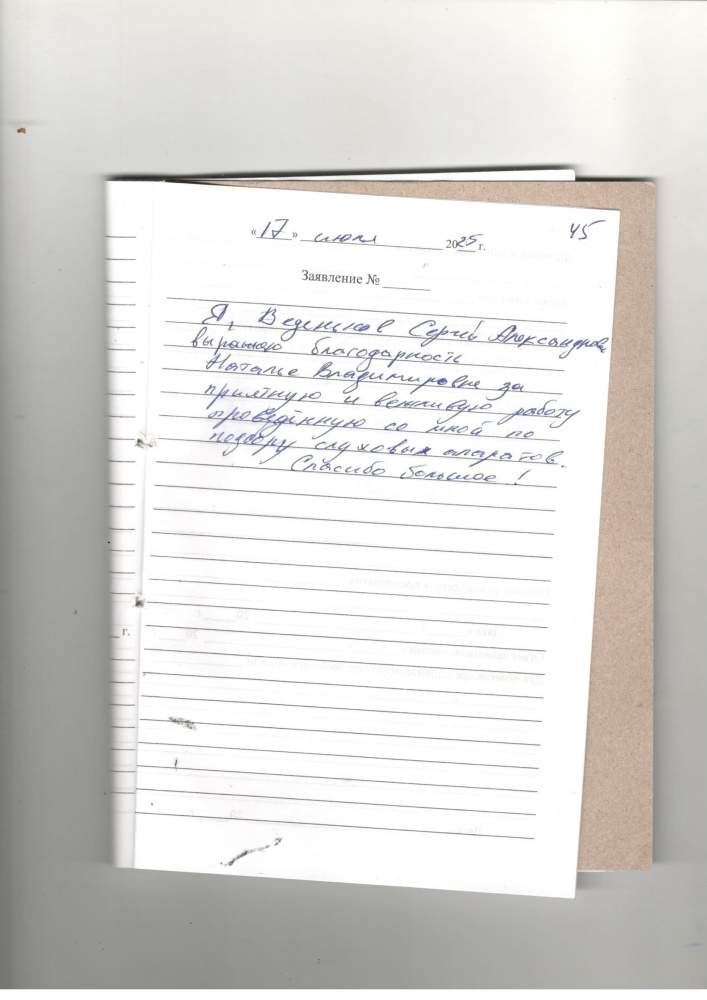 45
«17» июля 2025 г.
Заявление №
Я, Веденеков Сергей Александрович
выражаю благодарность
Наталье Владимировне за
приятную и вежливую работу
проведённую со мной по
подбору слуховых апаратов.
Спасибо большое!
г.